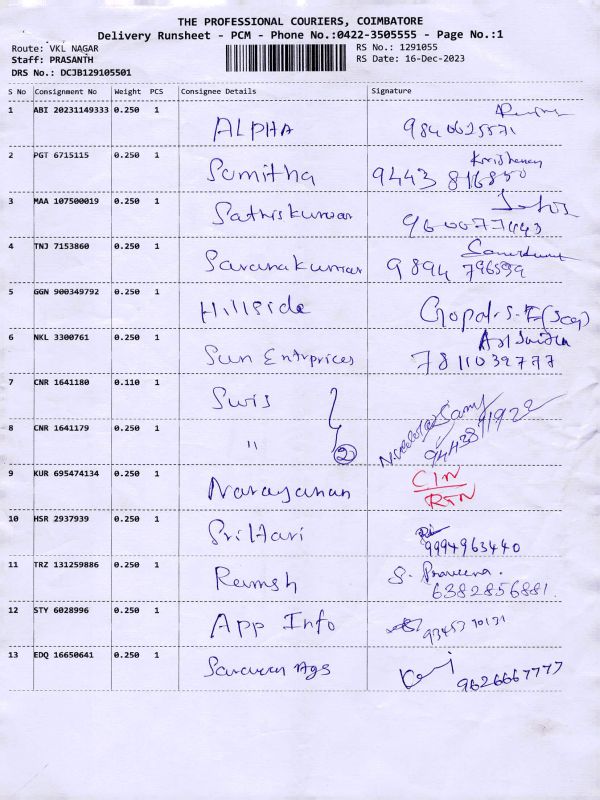 THE PROFESSIONAL COURIERS, COIMBATORE
Delivery Runsheet - PCM - Phone No.:0422-3505555 - Page No.:1
Route: VKL NAGAR RS No.: 1291055
Staff: PRASANTH RS Date: 16-Dec-2023
DRS No.: DCJB129105501
S No Consignment No Weight PCS Consignee Details Signature
1 ABI 20231149333 0.250 1
ALPHA
2 PGT 6715115 0.250 1
Sumitha 9443 816850
3 MAA 107500019 0.250 1
Sathiskumar 9600077443
4 TNJ 7153860 0.250 1
Saravanakumar 9894 796599
5 GGN 900349792 0.250 1
Hillside Gopal.S.
6 NKL 3300761 0.250 1
Sun Entrprices 7811039777
7 CNR 1641180 0.110 1
Swis
8 CNR 1641179 0.250 1
" 2
9 KUR 695474134 0.250 1
Narayanan CIN
RTN
10 HSR 2937939 0.250 1
SriHari 9994963440
11 TRZ 131259886 0.250 1
Remsh S. Praveena.
6382856881
12 STY 6028996 0.250 1
App Info
13 EDQ 16650641 0.250 1
Saravan Ags 9626667777